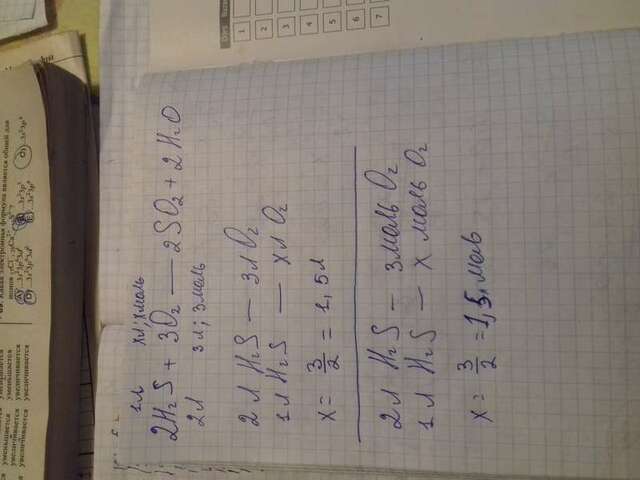 уменьшается уменьшается
увеличивается уменьшается
увеличивается увеличивается
Какая электронная формула является общей для
ионов
1л xл; xмоль
2H₂S + 3O₂ — 2SO₂ + 2H₂O
2л 3л; 3моль
2л H₂S — 3лO₂
1лH₂S — xл O₂
x = 3/2 = 1,5л
2л H₂S — 3моль O₂
1л H₂S — x моль O₂
x = 3/2 = 1,5 моль
1
2
3
4
5
6
7